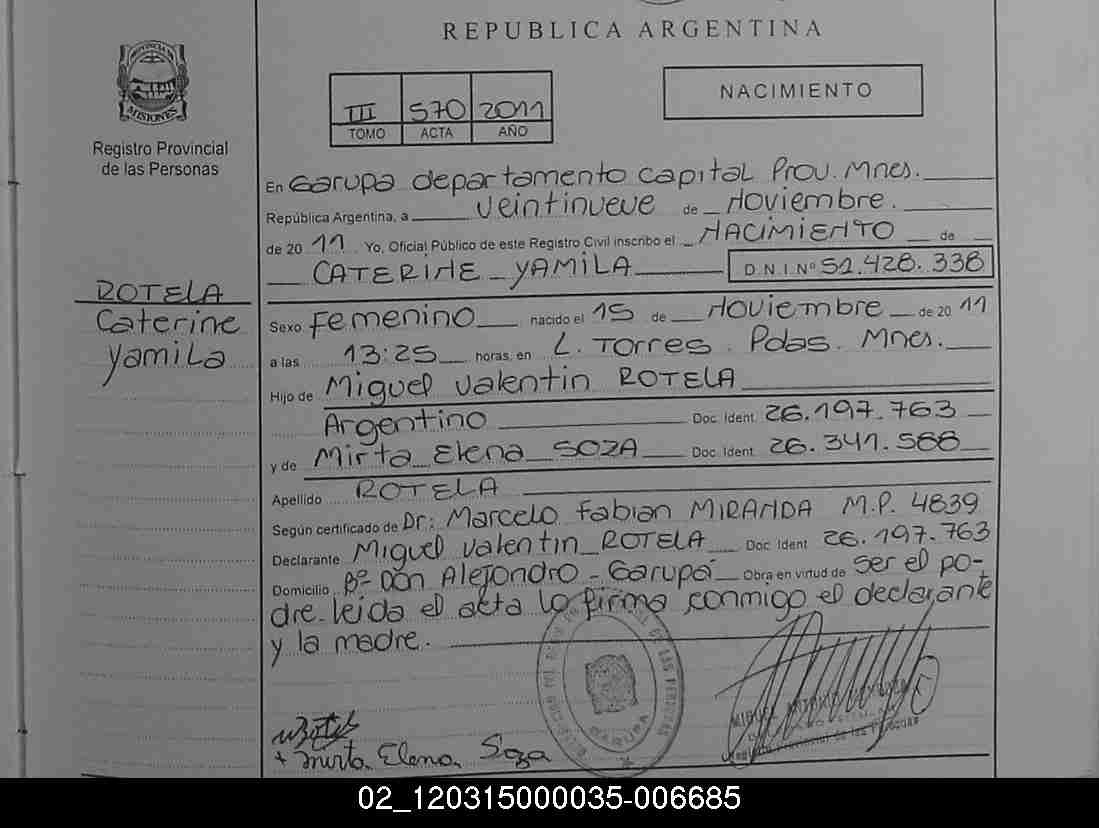 REPUBLICA ARGENTINA
PROVINCIA DE
MISIONES
Registro Provincial
de las Personas
III 570 2011
TOMO ACTA AÑO
NACIMIENTO
En Garupa departamento capital Prov. Mnes.
República Argentina, a veintinueve de Noviembre.
de 2011 Yo, Oficial Público de este Registro Civil inscribo el NACIMIENTO de
CATERINE YAMILA D.N.I.Nº 51.428.338
ROTELA
Caterine
Yamila
Sexo Femenino nacido el 15 de Noviembre de 2011
a las 13:25 horas, en L. Torres. Pdas. Mnes.
Hijo de Miguel Valentin ROTELA
Argentino Doc. Ident. 26.197.763
y de Mirta Elena SOZA Doc. Ident. 26.341.568
Apellido ROTELA
Según certificado de Dr: Marcelo Fabian MIRANDA M.P. 4839
Declarante Miguel Valentin ROTELA Doc. Ident. 26.197.763
Domicilio Bº Don Alejandro - Garupá Obra en virtud de ser el pa-
dre. leida el acta la firma conmigo el declarante
y la madre.
Mirta Elena Soza
02_120315000035-006685